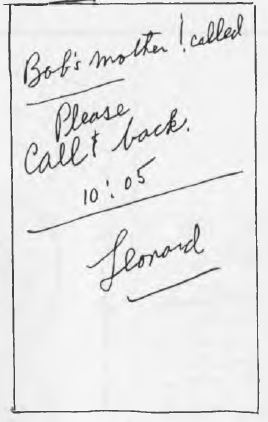 Bob's mother ! called
Please
Call & back.
10:05
Leonard